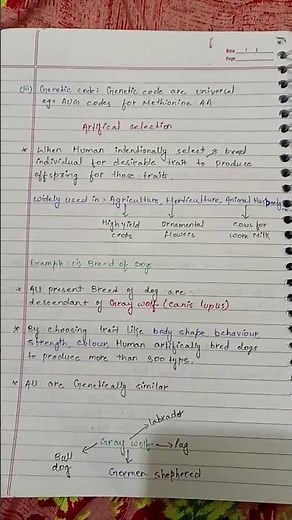 Date
Page
(iii) Genetic code: Genetic code are universal
eg. AUG codes for Methionine AA
Artifical selection
* When Human intendionally select & bred
individual for desirable trait to produce
offspring for those trait.
widely used in → Agriculture, Herticulture, Animal Husbandry
High yield crops
Ornamental flowers
Cows for more Milk
Example: (i) Breed of Dog
* All present Breed of dog are
descendant of Gray wolf (canis lupus)
* By choosing trait like body shape, behaviour,
strength, colour, Human artifically bred dogs
to produce more than 300 type.
* All are Genetically similar
Labrador
Gray wolf → Pug
Bull dog
Germen shephered